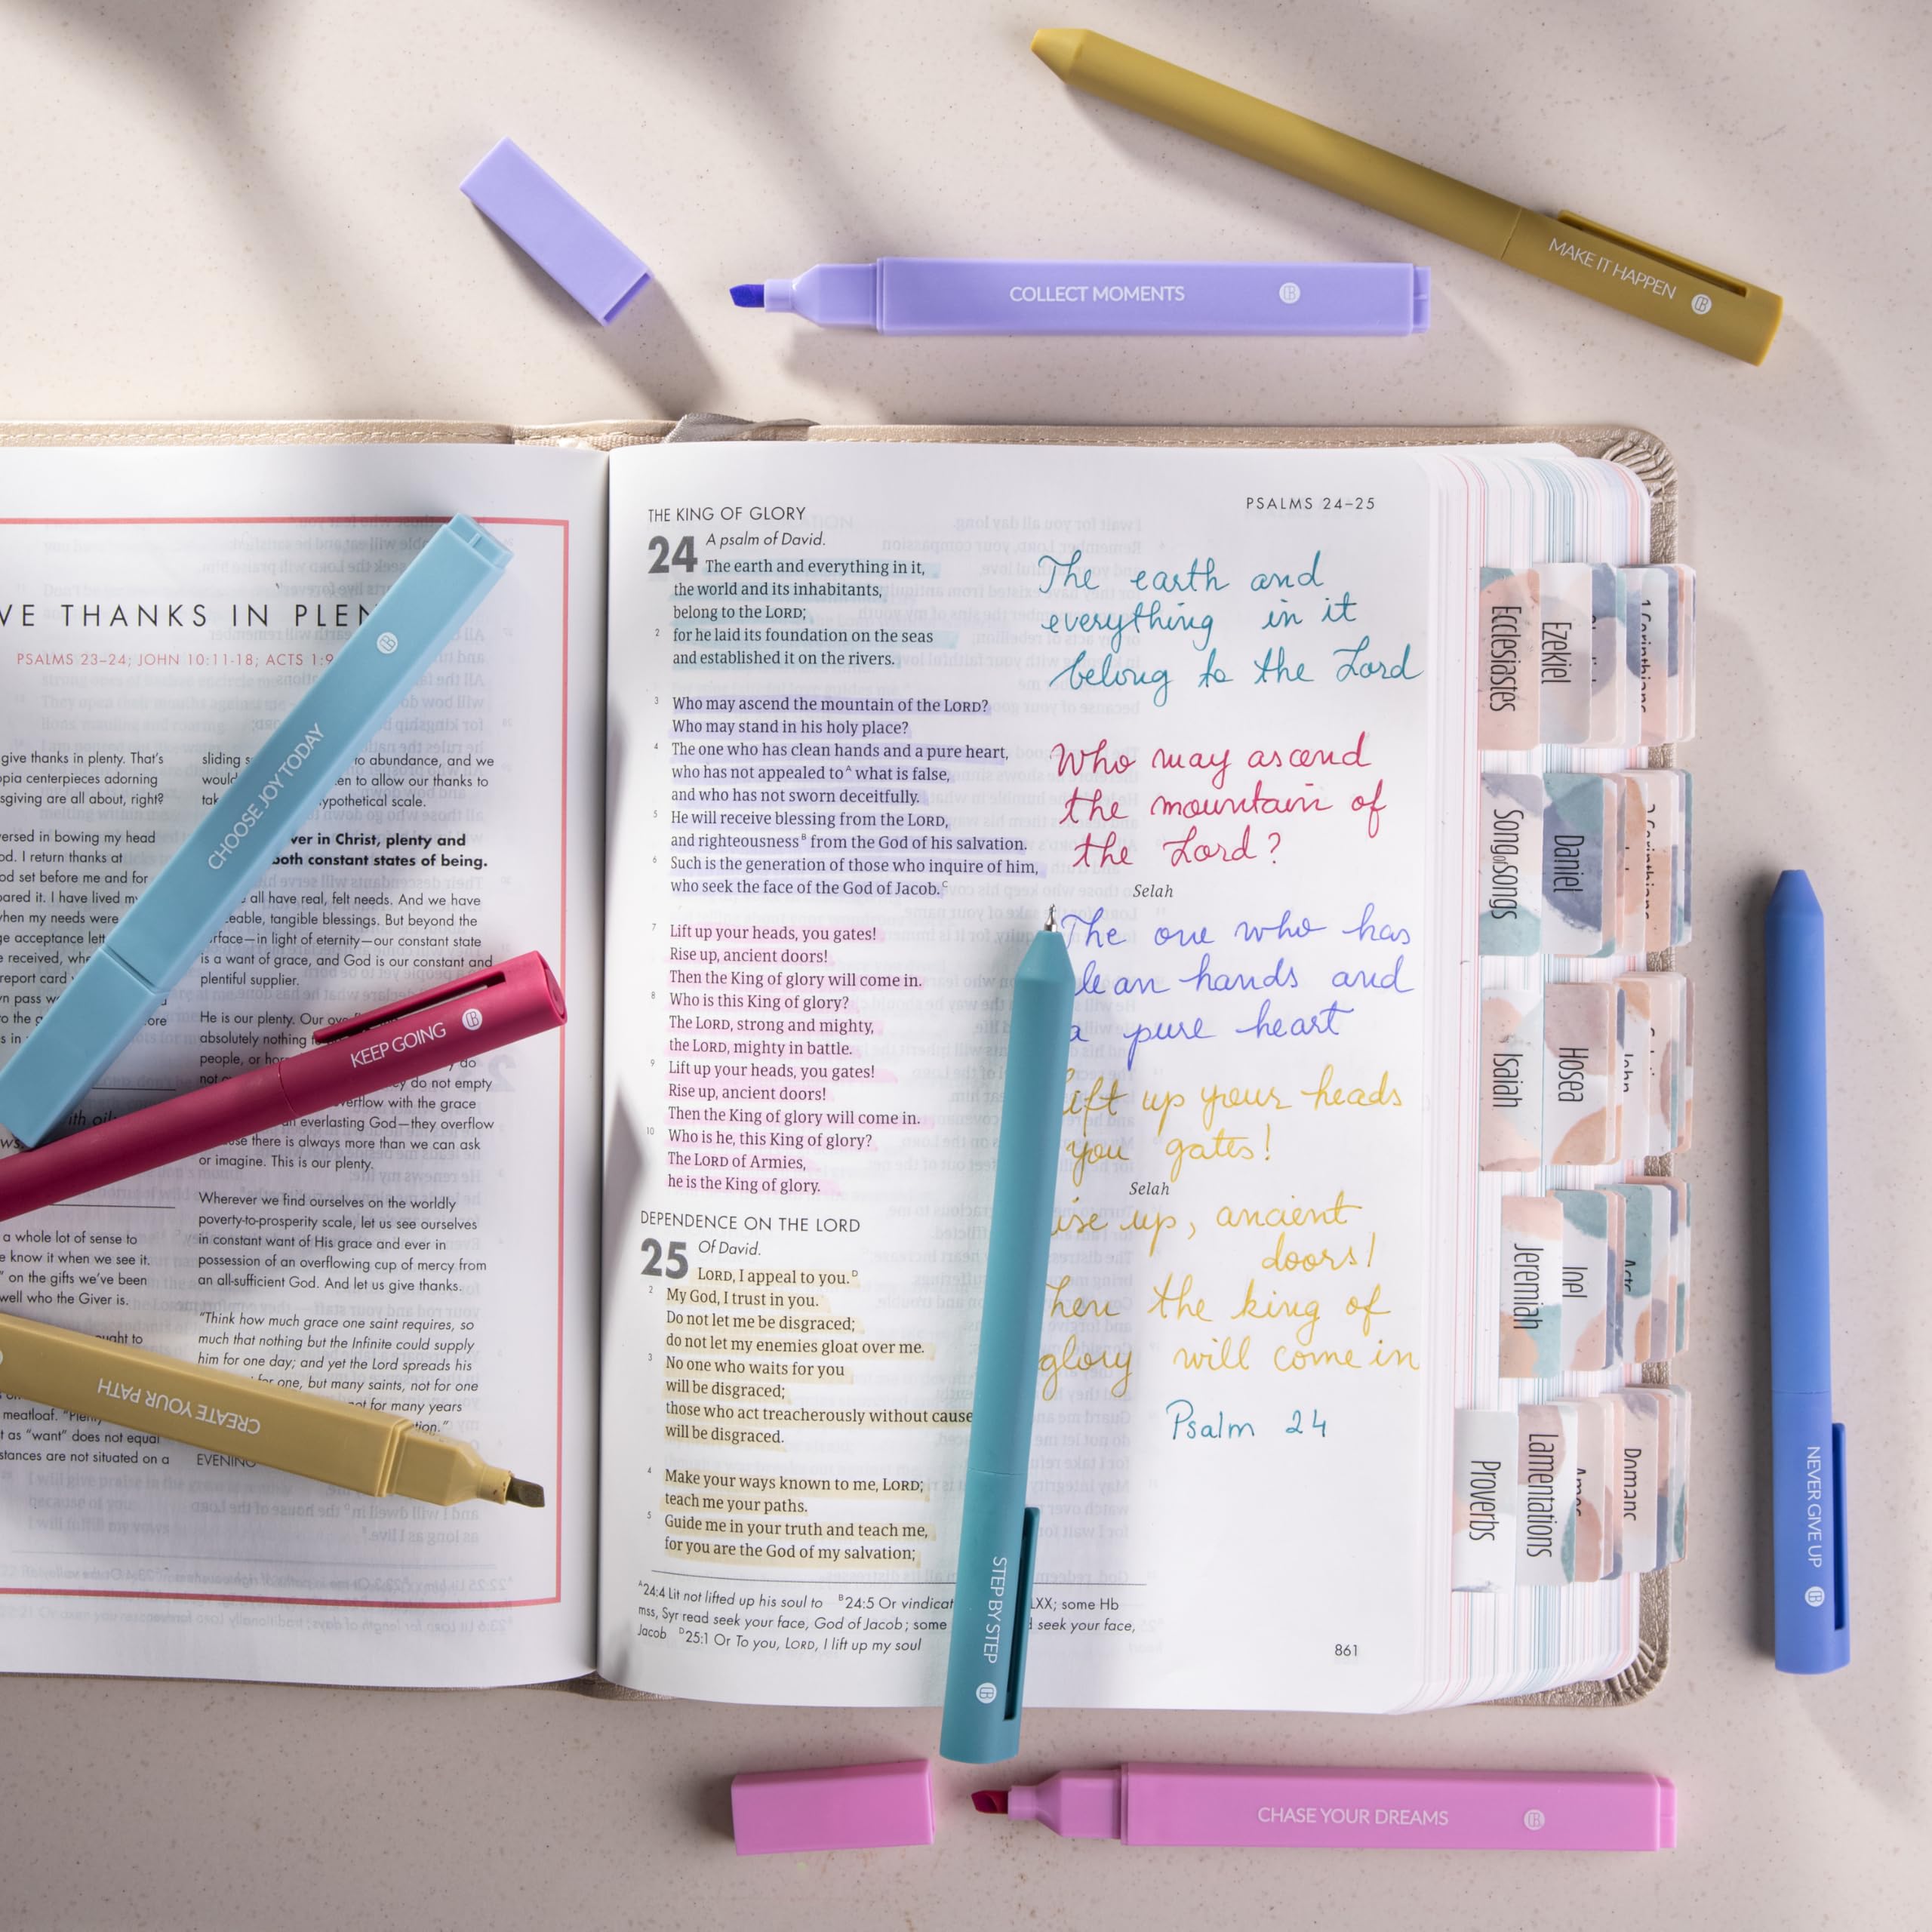 MAKE IT HAPPEN
COLLECT MOMENTS
VE THANKS IN PLEN
PSALMS 23–24; JOHN 10:11-18; ACTS 1:9
CHOOSE JOY TODAY
give thanks in plenty. That's
opia centerpieces adorning
sgiving are all about, right?
ersed in bowing my head
od. I return thanks at
od set before me and for
pared it. I have lived
when my needs were
ge acceptance
e received,
report card
n pass
to the
s in
a whole lot of sense to
e know it when we see it.
" on the gifts we've been
well who the Giver is.
ought to
meatloaf.
t as "want" does not equal
stances are not situated on a
sliding to abundance, and we
would en to allow our thanks to
hypothetical scale.
ver in Christ, plenty and
both constant states of being.
all have real, felt needs. And we have
eable, tangible blessings. But beyond the
rface—in light of eternity—our constant state
is a want of grace, and God is our constant and
plentiful supplier.
He is our plenty. Our
absolutely nothing
people, or
do
not ey do not empty
verflow with the grace
an everlasting God—they overflow
use there is always more than we can ask
or imagine. This is our plenty.
Wherever we find ourselves on the worldly
poverty-to-prosperity scale, let us see ourselves
in constant want of His grace and ever in
possession of an overflowing cup of mercy from
an all-sufficient God. And let us give thanks.
"Think how much grace one saint requires, so
much that nothing but the Infinite could supply
him for one day; and yet the Lord spreads his
for one, but many saints, not for one
not for many years
tion."
EVENING
KEEP GOING
CREATE YOUR PATH
PSALMS 24–25
THE KING OF GLORY
24 A psalm of David.
The earth and everything in it,
the world and its inhabitants,
belong to the LORD;
2 for he laid its foundation on the seas
and established it on the rivers.
3 Who may ascend the mountain of the LORD?
Who may stand in his holy place?
4 The one who has clean hands and a pure heart,
who has not appealed to A what is false,
and who has not sworn deceitfully.
5 He will receive blessing from the LORD,
and righteousness B from the God of his salvation.
6 Such is the generation of those who inquire of him,
who seek the face of the God of Jacob. C
Selah
7 Lift up your heads, you gates!
Rise up, ancient doors!
Then the King of glory will come in.
8 Who is this King of glory?
The LORD, strong and mighty,
the LORD, mighty in battle.
9 Lift up your heads, you gates!
Rise up, ancient doors!
Then the King of glory will come in.
10 Who is he, this King of glory?
The LORD of Armies,
he is the King of glory.
Selah
DEPENDENCE ON THE LORD
25 Of David.
LORD, I appeal to you. D
2 My God, I trust in you.
Do not let me be disgraced;
do not let my enemies gloat over me.
3 No one who waits for you
will be disgraced;
those who act treacherously without cause
will be disgraced.
4 Make your ways known to me, LORD;
teach me your paths.
5 Guide me in your truth and teach me,
for you are the God of my salvation;
A 24:4 Lit not lifted up his soul to B 24:5 Or vindicat LXX; some Hb
mss, Syr read seek your face, God of Jacob; some seek your face,
Jacob D 25:1 Or To you, LORD, I lift up my soul
861
The earth and
everything in it
belong to the Lord
Who may ascend
the mountain of
the Lord?
The one who has
lean hands and
a pure heart
ift up your heads
you gates!
ise up, ancient
doors!
hen the king of
glory will come in
Psalm 24
STEP BY STEP
Ecclesiastes
Ezekiel
1 Corinthians
Song of songs
Daniel
2 Corinthians
Isaiah
Hosea
John
Jeremiah
Joel
Acts
Proverbs
Lamentations
Amos
Romans
NEVER GIVE UP
CHASE YOUR DREAMS